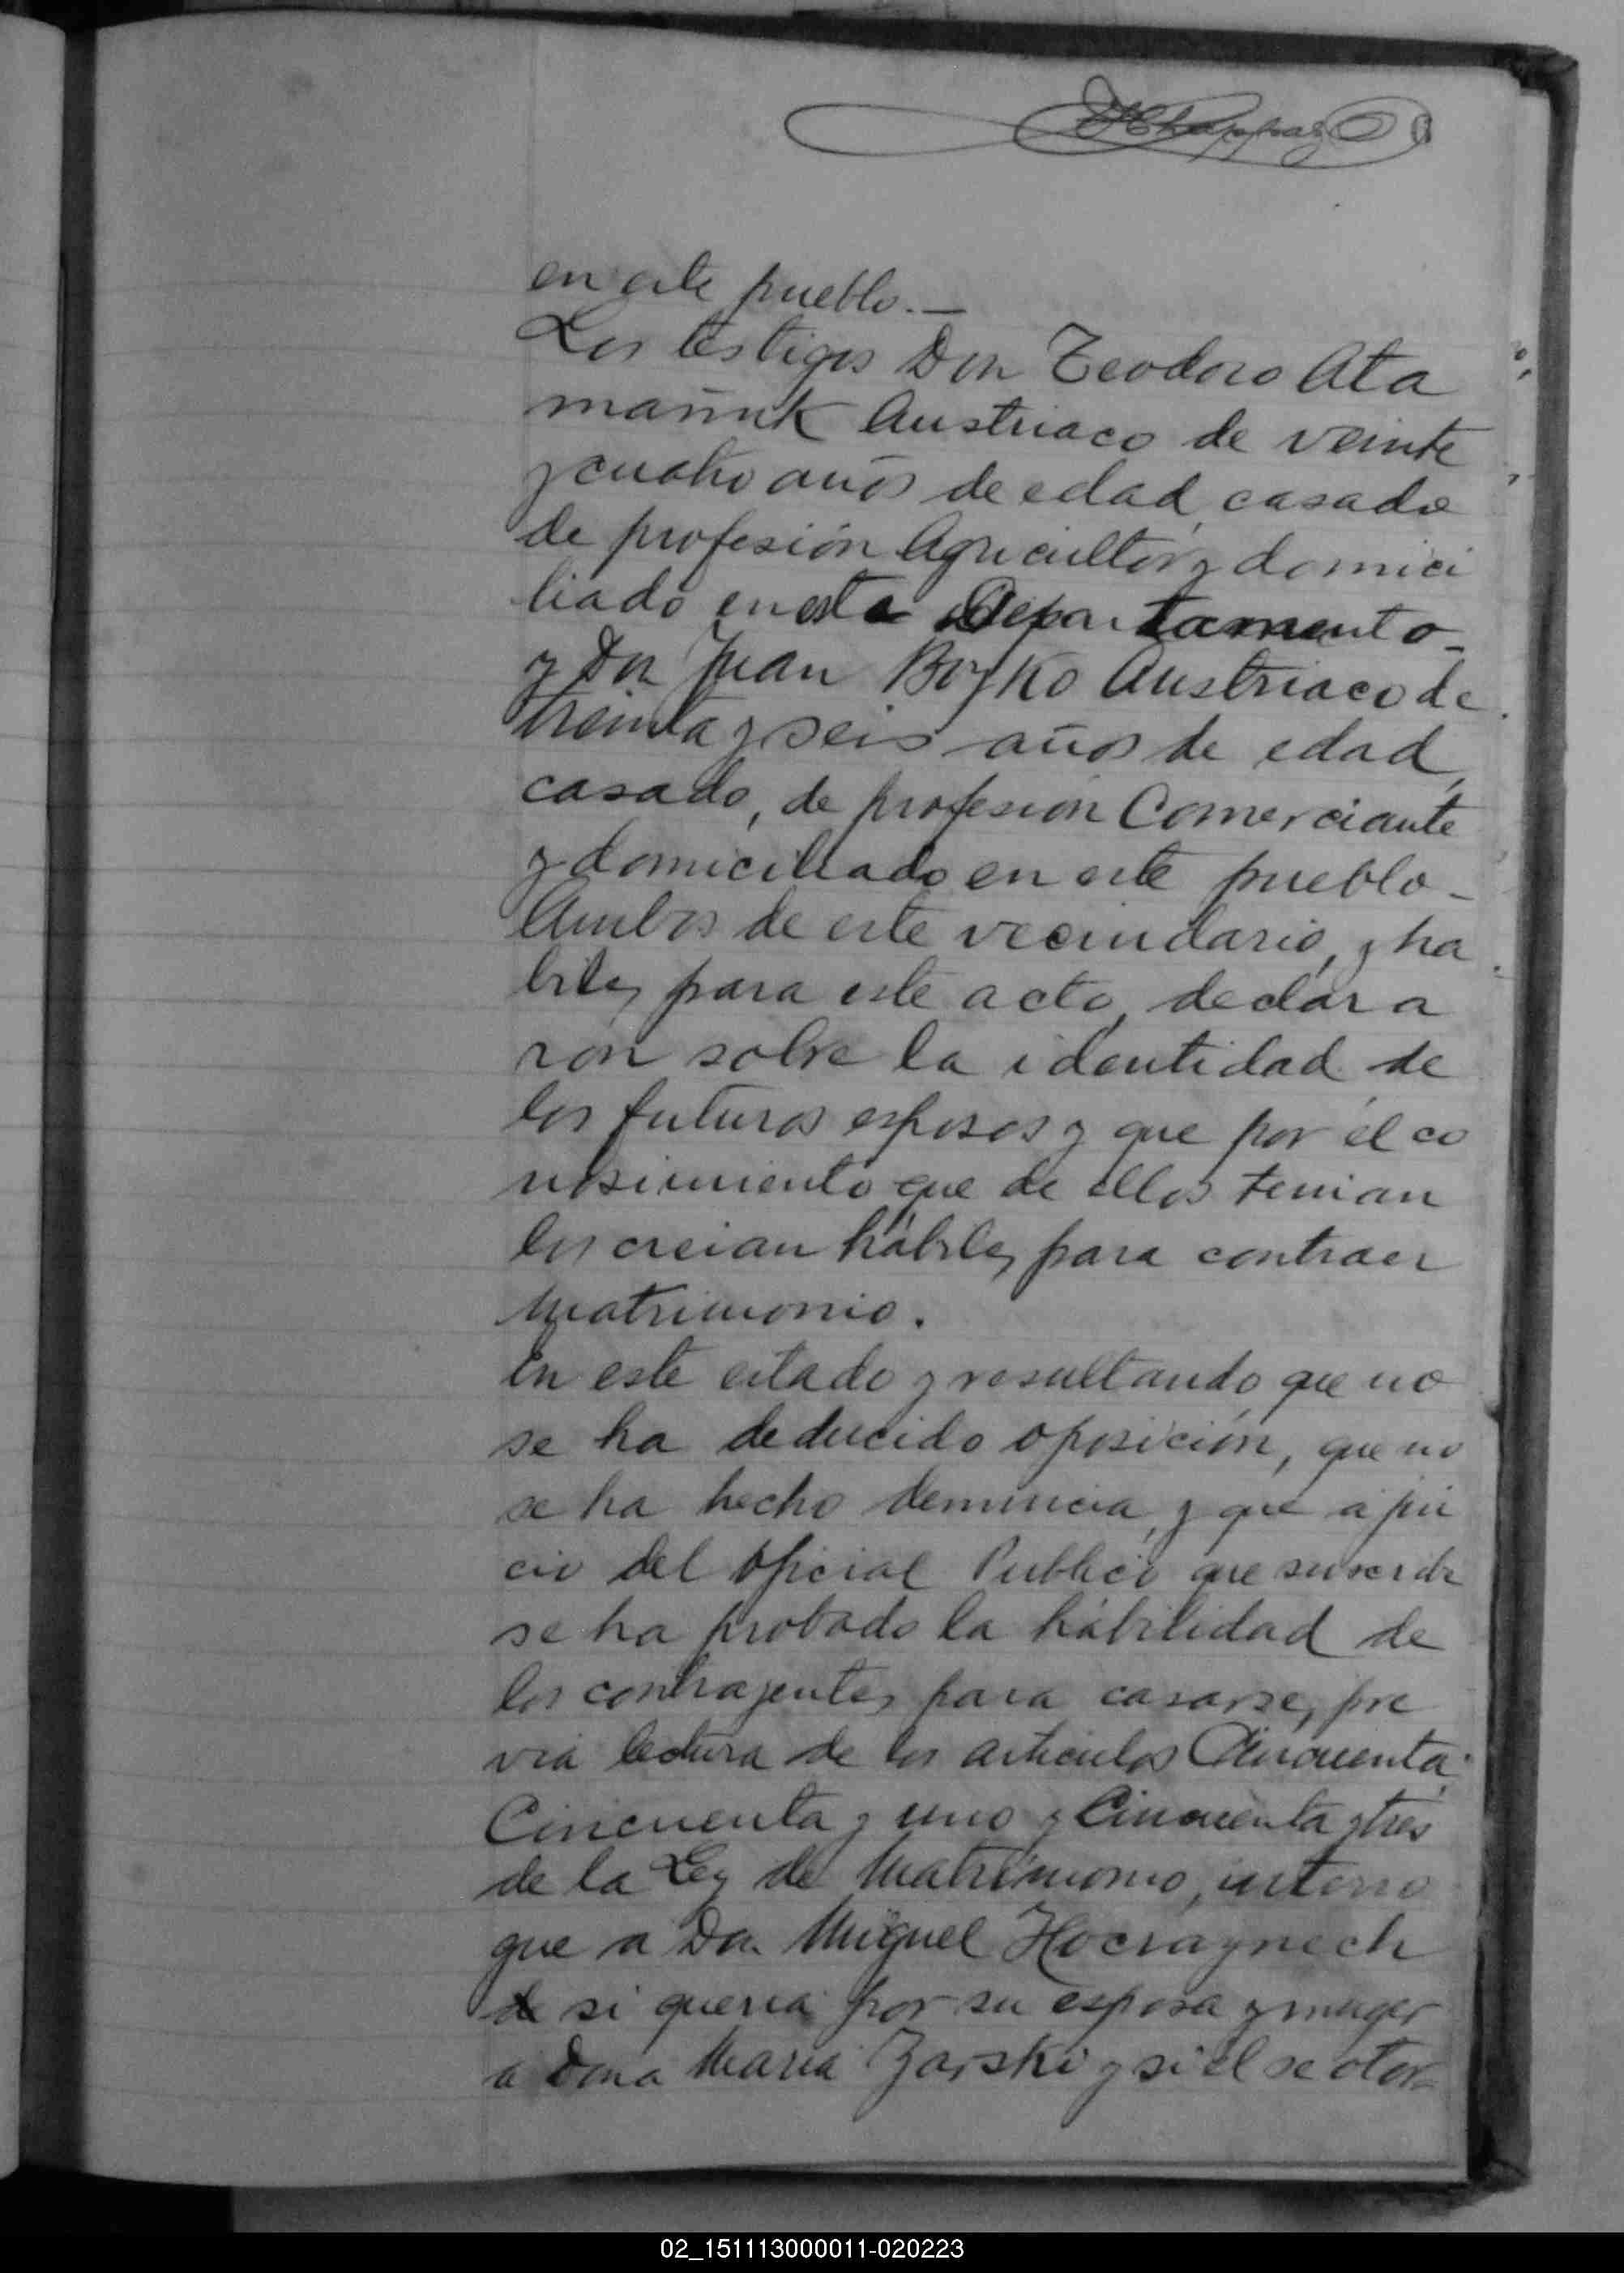 en este pueblo.—
Los testigos Don Teodoro Ata
mañuk Austriaco de veinte
y cuatro años de edad, casado
de profesión Agricultor y domici
liado en este Departamento_
y Don Juan Boyko Austriaco de
treinta y seis años de edad,
casado, de profesión Comerciante
y domiciliado en este pueblo_
Ambos de este vecindario, y ha
biles para este acto, declara
ron sobre la identidad de
los futuros esposos y que por el co
nosimiento que de ellos tenian
los creian hábiles para contraer
Matrimonio.
En este estado y resultando que no
se ha deducido oposición, que no
se ha hecho denuncia, y que a jui
cio del Oficial Publico que suscribe
se ha probado la habilidad de
los contrayentes para casarse, pre
via lectura de los articulos Cincuenta,
Cincuenta y uno y Cincuenta y tres
de la Ley de Matrimonio, interro
gue a Don Miguel Hocraynech
de si queria por su esposa y muger
a Doña Maria Zarski y si el se otor
02_151113000011-020223